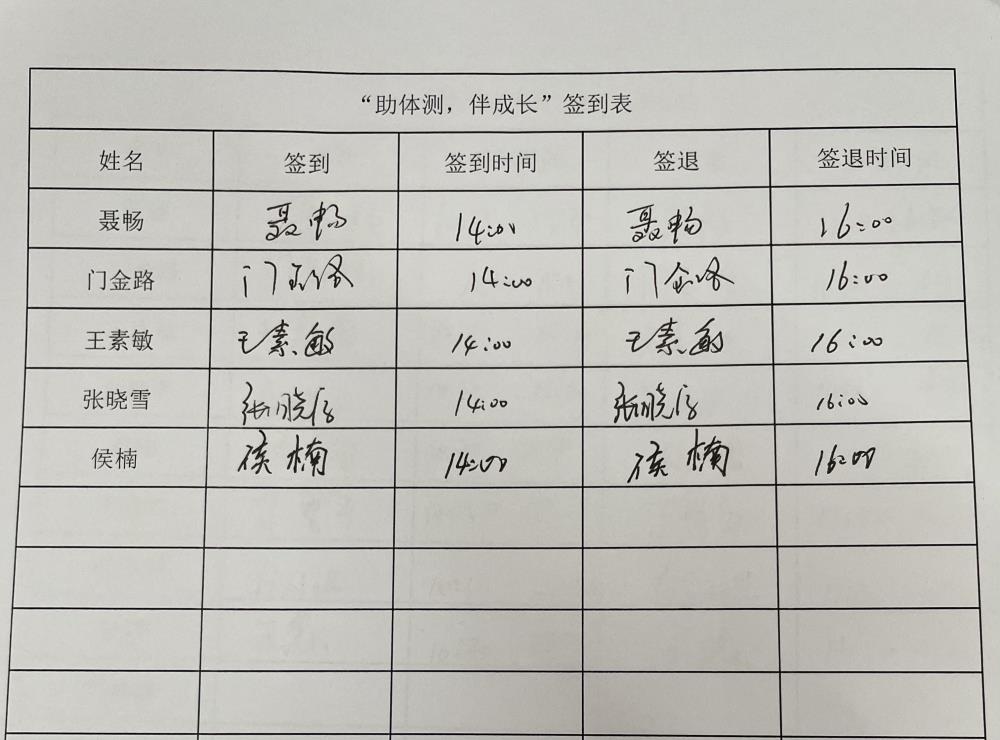 “助体测，伴成长”签到表
姓名 签到 签到时间 签退 签退时间
聂畅 聂畅 14:00 聂畅 16:00
门金路 门金路 14:00 门金路 16:00
王素敏 王素敏 14:00 王素敏 16:00
张晓雪 张晓雪 14:00 张晓雪 16:00
侯楠 侯楠 14:00 侯楠 16:00